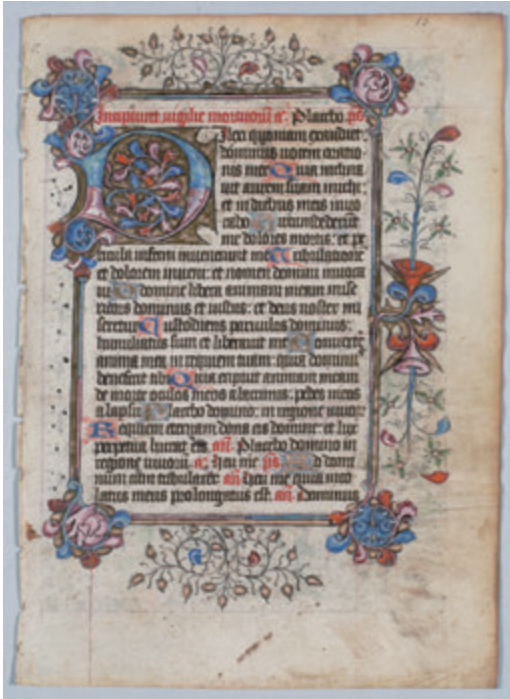 12
Incipiunt vigilie mortuorum a. Placebo ps
Dilexi quoniam exaudiet
dominus vocem oratio
nis mee Quia inclina
vit aurem suam michi:
et in diebus meis invo
cabo Circumdederunt
me dolores mortis: et pe
ricula inferni invenerunt me Tribulatione
et dolorem inveni: et nomen domini invoca
vi O domine libera animam meam mise
ricors dominus et iustus: et deus noster mi
seretur Custodiens parvulos dominus:
humiliatus sum et liberavit me Convertere
anima mea in requiem tuam: quia dominus
benefecit tibi Quia eripuit animam meam
de morte oculos meos a lacrimis: pedes meos
a lapsu Placebo domino: in regione vivor
Requiem eternam dona eis domine: et lux
perpetua luceat eis an. Placebo domino in
regione vivorum. a. heu me ps Ad domi
num cum tribularer an heu me quia inco
latus meus prolongatus est. an Dominus